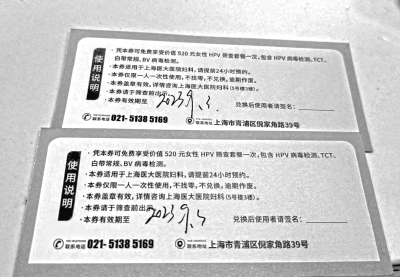 使用说明
· 凭本券可免费享受价值 520 元女性 HPV 筛查套餐一次，包含 HPV 病毒检测、TCT、
白带常规、BV 病毒检测。
· 本券适用于上海医大医院妇科，请提前24小时预约。
· 本券仅限一人一次性使用，不找零，不兑换，逾期作废。
· 本券盖章有效，详情咨询上海医大医院妇科（5号楼3楼）。
· 本券请于筛查前出示
· 本券有效期至 2023.9.3. 兑换后使用者请签名：
联系电话 021- 5138 5169 联系地址 上海市青浦区倪家角路39号
使用说明
· 凭本券可免费享受价值 520 元女性 HPV 筛查套餐一次，包含 HPV 病毒检测、TCT、
白带常规、BV 病毒检测。
· 本券适用于上海医大医院妇科，请提前24小时预约。
· 本券仅限一人一次性使用，不找零，不兑换，逾期作废。
· 本券盖章有效，详情咨询上海医大医院妇科（5号楼3楼）。
· 本券请于筛查前出示
· 本券有效期至 2023.9.3 兑换后使用者请签名：
联系电话 021- 5138 5169 联系地址 上海市青浦区倪家角路39号